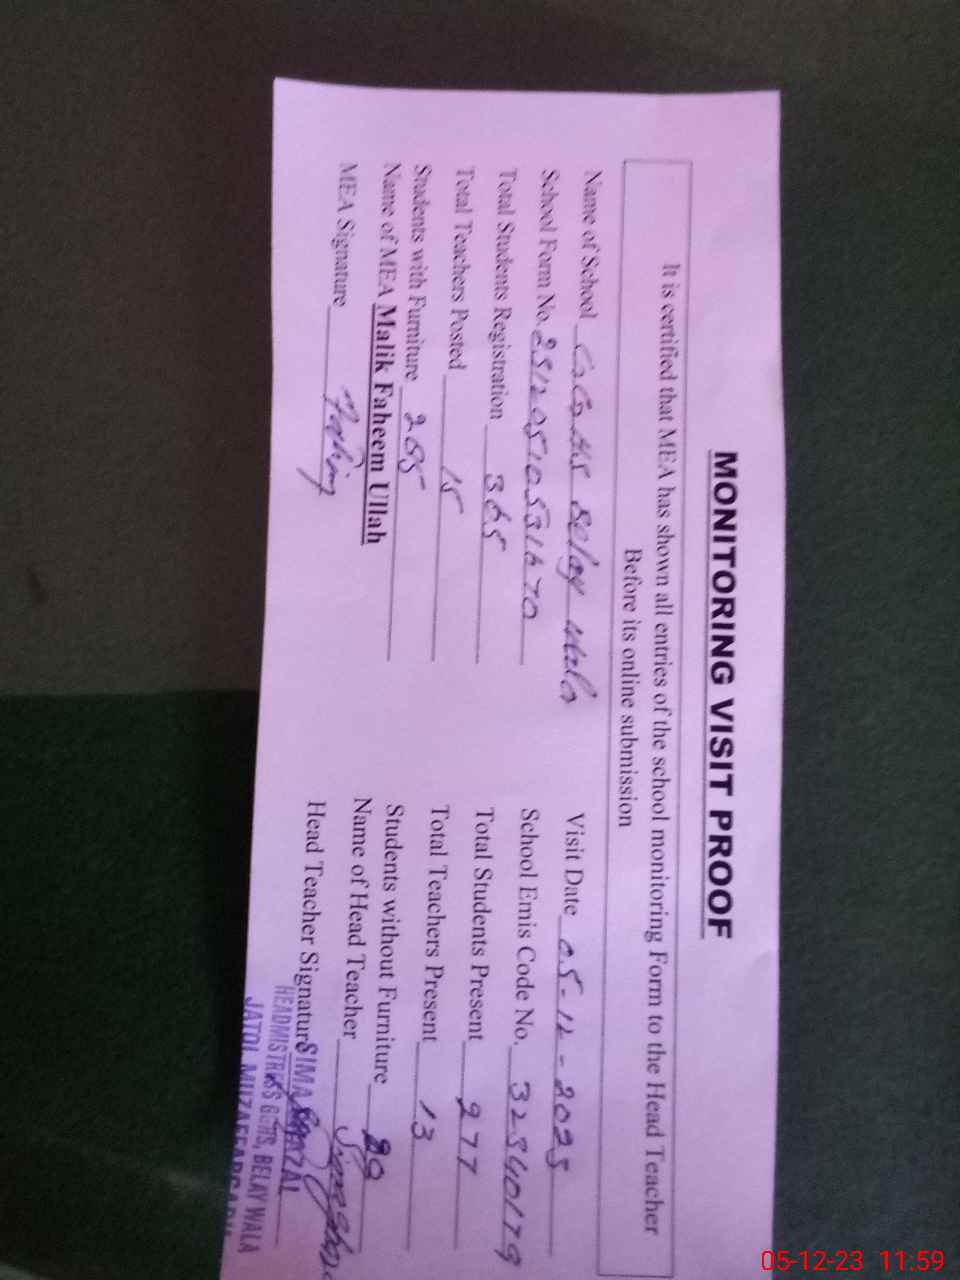 MONITORING VISIT PROOF
It is certified that MEA has shown all entries of the school monitoring Form to the Head Teacher
Before its online submission
Name of School GGHS Belay Wala
Visit Date 05-12-2023
School Form No.
School Emis Code No. 32340179
Total Students Registration 365
Total Students Present 277
Total Teachers Posted 15
Total Teachers Present 13
Students with Furniture 265
Students without Furniture
Name of MEA Malik Faheem Ullah
Name of Head Teacher
MEA Signature Fahim
Head Teacher Signature
SIMA
HEADMISTRESS GGHS, BELAY WALA
JATOI MUZAFFARGARH
05-12-23 11:59